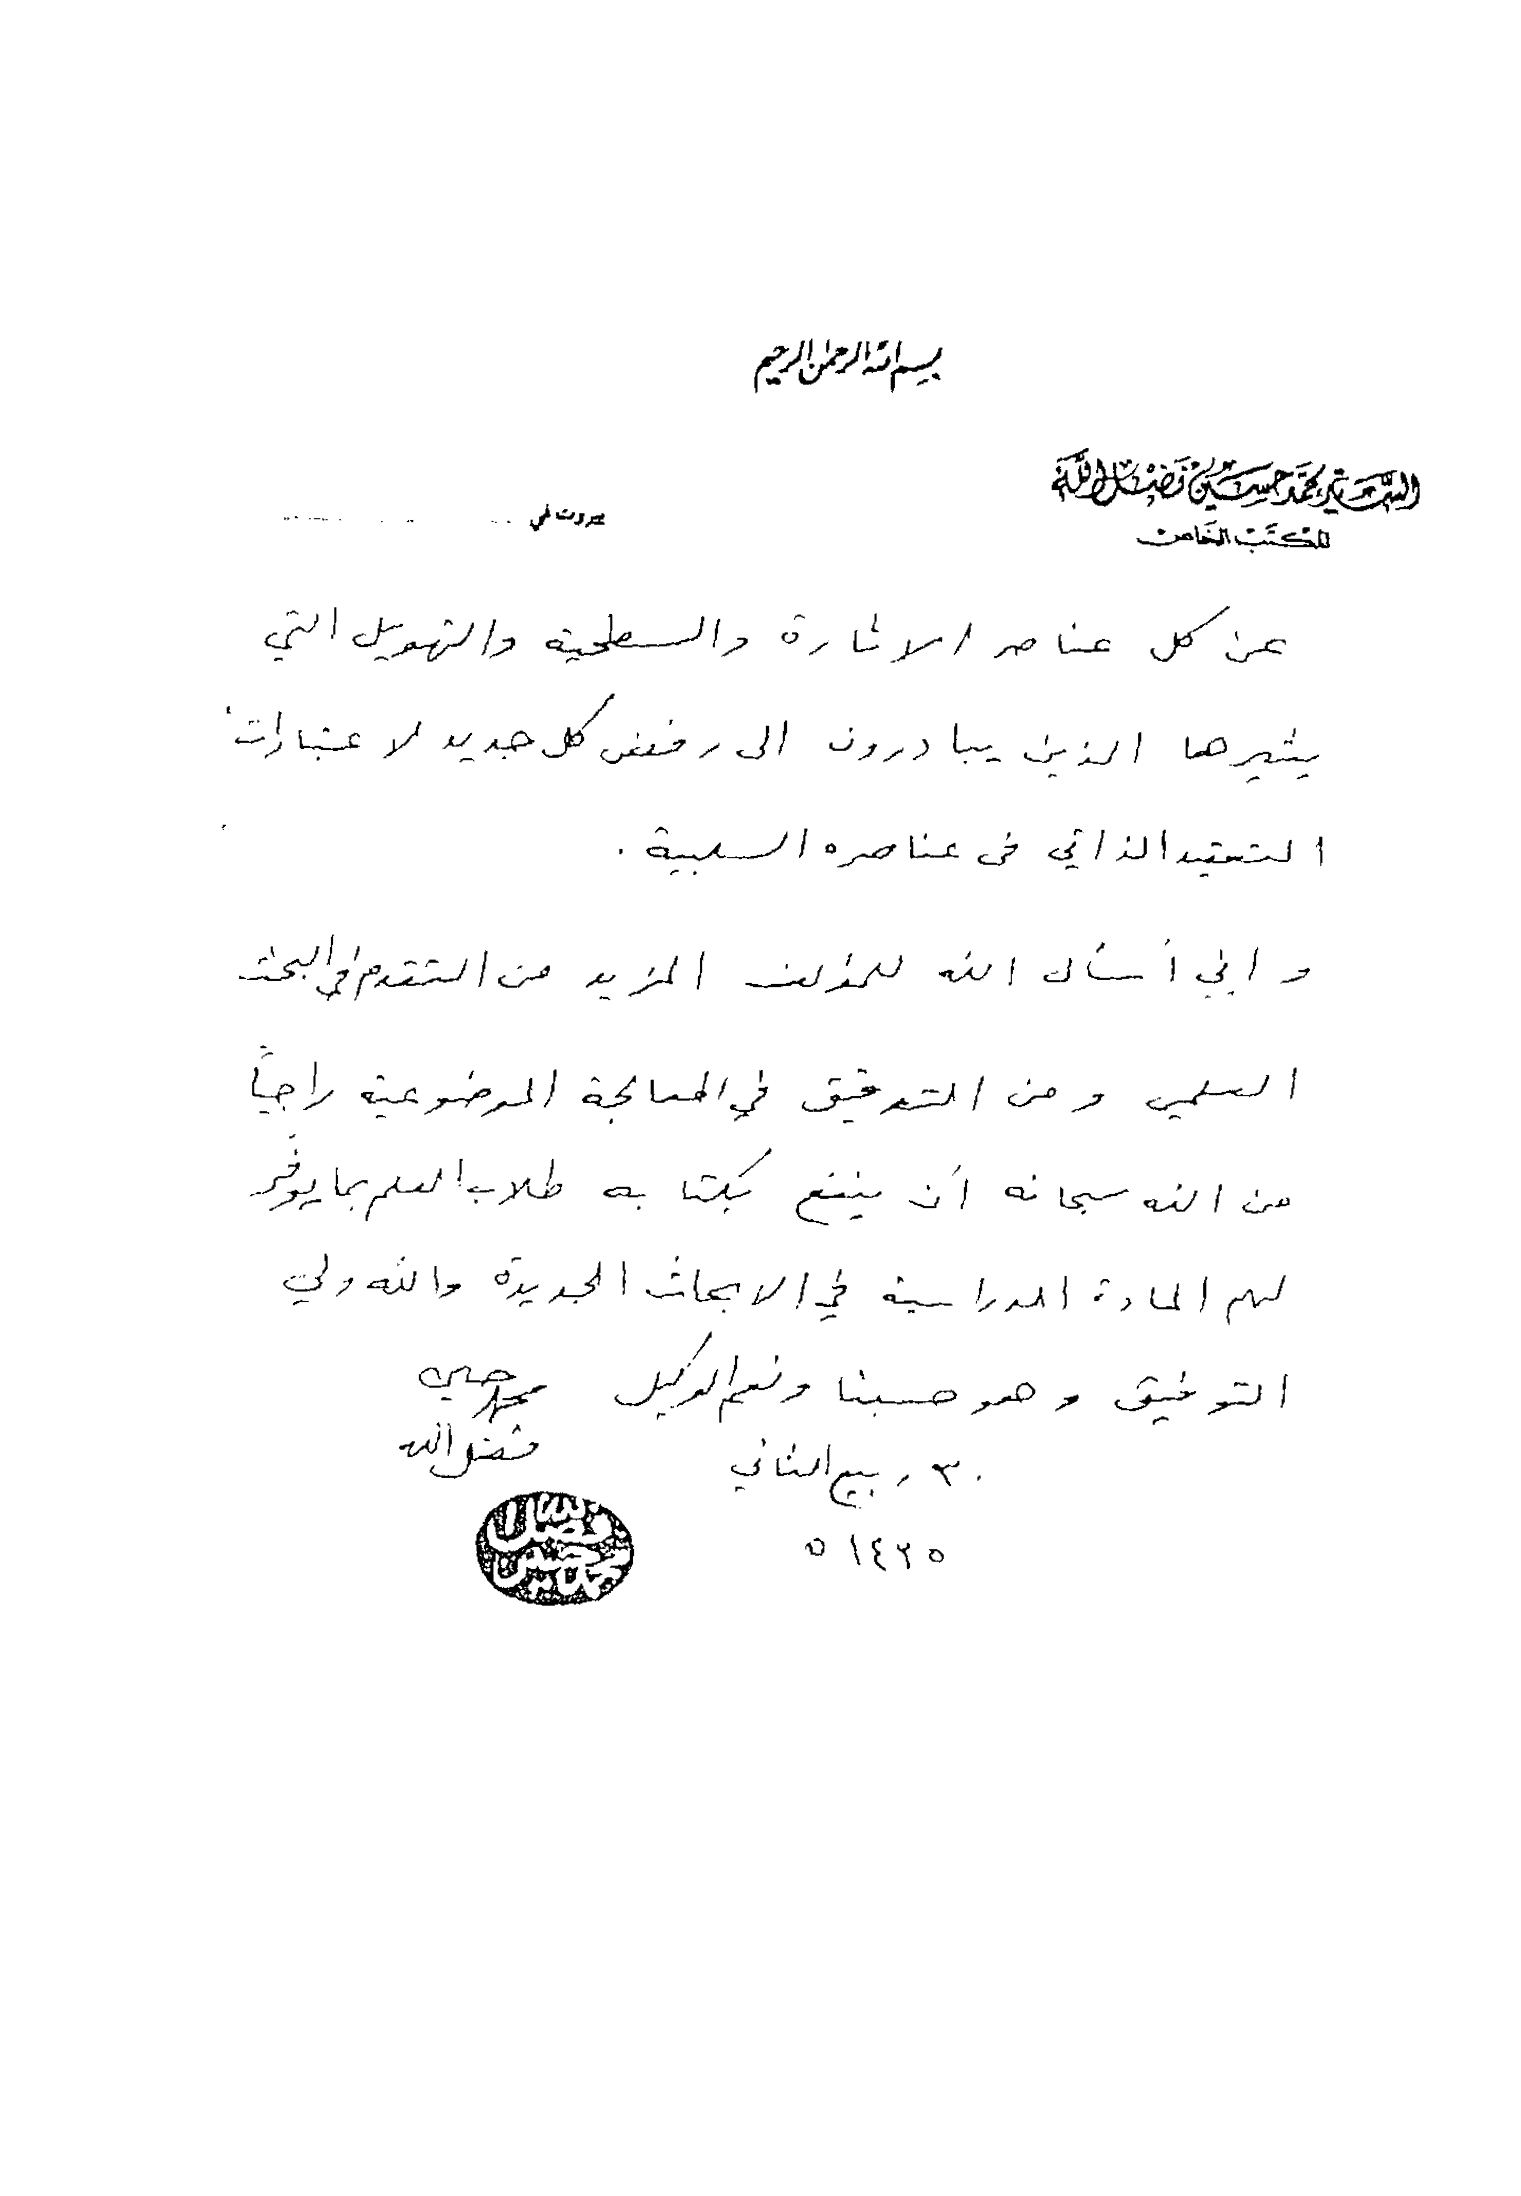 بسم الله الرحمن الرحيم
السيد محمد حسين فضل الله
المكتب الخاص
بيروت في
عن كل عناصر الاثارة والسطحية والتهويل التي
يثيرها الذين يبادرون الى رفض كل جديد لاعتبارات
التعقيد الذاتي في عناصره السلبية .
واني أسأل الله للمؤلف المزيد من التقدم في البحث
العلمي ومن التدقيق في المعالجة الموضوعية راجياً
من الله سبحانه أن ينفع بكتابه طلاب العلم بما يوفّر
لهم المادة الدراسية في الابحاث الجديدة والله ولي
التوفيق وهو حسبنا ونعم الوكيل
محمد حسين
فضل الله
٣٠ ربيع الثاني
١٤٢٥ ه
محمد حسين فضل الله